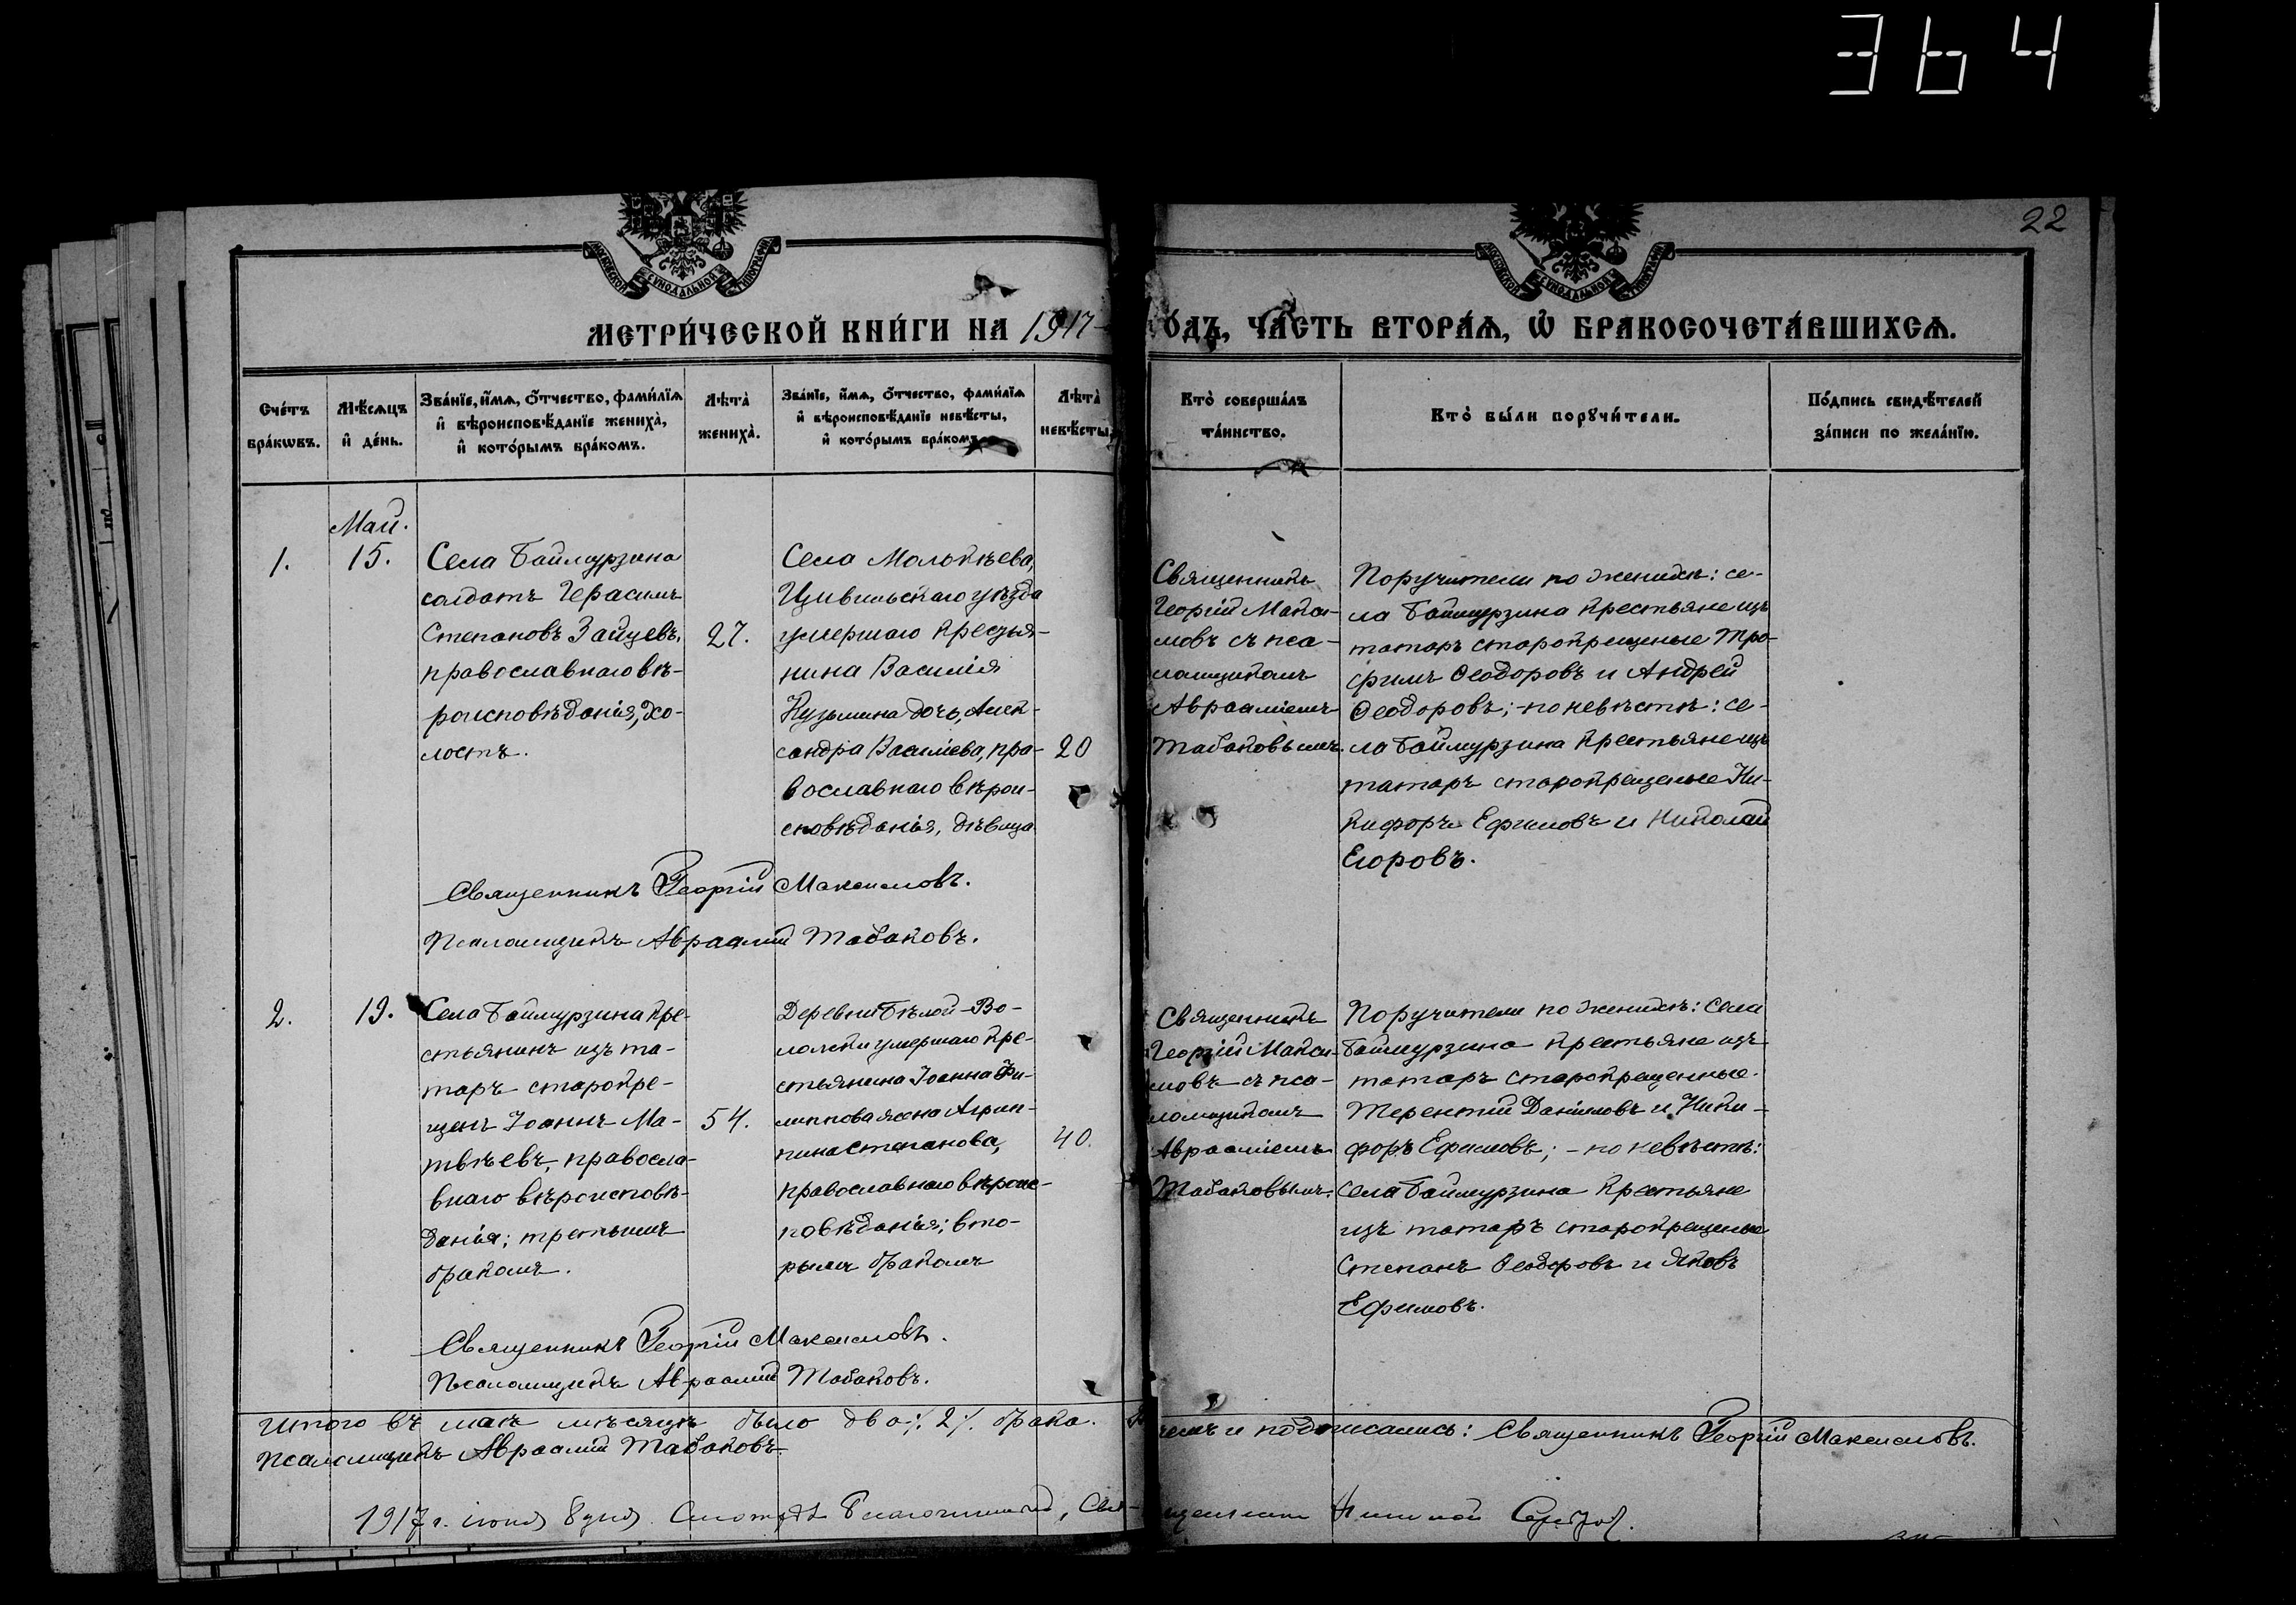 364
22
МОСКОВСКОЙ СУНОДАЛЬНОЙ ТИПОГРАФІИ
МОСКОВСКОЙ СУНОДАЛЬНОЙ ТИПОГРАФІИ
МЕТРИ́ЧЕСКОЙ КНИ́ГИ НА 1917 ОДЪ, ЧА́СТЬ ВТОРА́Ѧ, Ѽ БРАКОСОЧЕТА́ВШИХСѦ.
Сче́тъ
бра́кѡвъ.
Мѣ́сѧцъ
и҆ де́нь.
Зва́нїе, и҆́мѧ, ѻ҆́тчество, фами́лїѧ
и҆ вѣроисповѣ́данїе жениха̀,
и҆ кото́рымъ бра́комъ.
Лѣта̀
жениха̀.
Зва́нїе, и҆́мѧ, ѻ҆́тчество, фами́лїѧ
и҆ вѣроисповѣ́данїе невѣ́сты,
и҆ кото́рымъ бра́комъ
Лѣта̀
невѣ́сты.
Кто̀ соверша́лъ
та́инство.
Кто̀ бы́ли порꙋчи́тели.
По́дпись свидѣ́телей
за́писи по жела́нїю.
1.
Май.
15.
Села Баймурзина
солдатъ Герасимъ
Степановъ Зайцевъ,
православнаго вѣ-
роисповѣданія, хо-
лостъ.
27.
Села Молькѣева,
Цивильскаго уѣзда
умершаго кресья-
нина Василія
Кузьмина дочь, Алек-
сандра Васильева, пра-
вославнаго вѣрои-
сповѣданія, дѣвица
20
Священникъ
Георгій Макси-
мовъ съ пса-
ломщикомъ
Авраамiемъ
Табаковымъ.
Поручители по женихѣ: се-
ла Баймурзина крестьяне изъ
татаръ старокрещеные Тро-
фимъ Ѳеодоровъ и Андрей
Ѳеодоровъ; - по невѣстѣ: се-
ла Баймурзина крестьяне изъ
татаръ старокрещеные Ни-
кифоръ Ефимовъ и Николай
Егоровъ.
Священникъ Георгій Максимовъ.
Псаломщикъ Авраамій Табаковъ.
2.
19.
Села Баймурзина кре-
стьянинъ изъ та-
таръ старокре-
щенъ Іоаннъ Ма-
твѣевъ, правосла-
внаго вѣроисповѣ-
данія; третьимъ
бракомъ.
54.
Деревни Бѣлой-Во-
ложки умершаго кре-
стьянина Іоанна Фи-
липпова жена Агрип-
пина Степанова,
православнаго вѣроис-
повѣданія; вто-
рымъ бракомъ
40.
Священникъ
Георгій Макси-
мовъ съ пса-
ломщикомъ
Авраамiемъ
Табаковымъ.
Поручители по женихѣ: Села
Баймурзина крестьяне изъ
татаръ старокрещенные
Терентій Даниловъ и Ники-
форъ Ефимовъ; - по невѣстѣ:
Села Баймурзина крестьяне
изъ татаръ старокрещеные
Степанъ Ѳеодоровъ и Яковъ
Ефимовъ.
Священникъ Георгій Максимовъ.
Псаломщикъ Авраамій Табаковъ.
Итого въ маѣ мѣсяцѣ было два ٪ 2 ٪ брака. чемъ и подписались: Священникъ Георгій Максимовъ.
Псаломщикъ Авраамій Табаковъ.
1917 г. іюня 8 дня. Смотрѣлъ Благочинный, Священникъ Николай